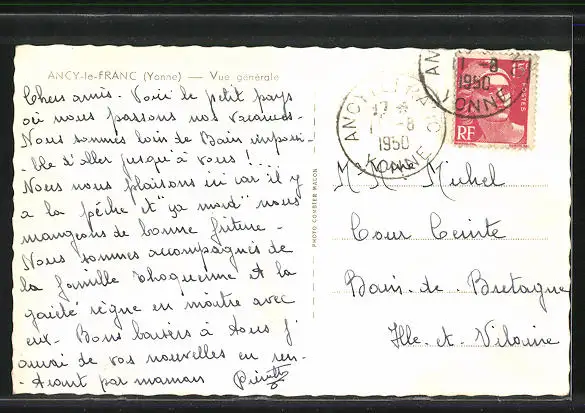 ANCY-le-FRANC (Yonne) — Vue générale
Chers amis. Voici le petit pays
où nous passons nos vacances-
Nous sommes loin de Bain impossi-
-ble d'aller jusqu'à vous !....
Nous nous plaisons ici car il y
a la pêche et "ça mord" nous
mangeons de bonne friture -
Nous sommes accompagnés de
la famille et la
gaieté règne en maître avec
eux - Bons baisers à tous j'
aurai de vos nouvelles en ren-
-trant par maman Pierrette
PHOTO COMBIER MACON
ANCY LE FRANC
17 *
1 -8
1950
YONNE
1 -8
1950
YONNE
POSTES
RF
M. Me Michel
Cour Ceinte
Bain-de-Bretagne
Ille-et-Vilaine